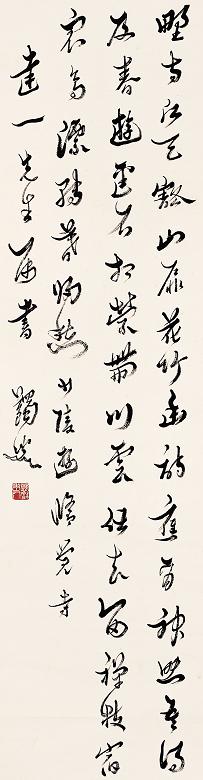 野寺江天豁山扉花竹幽詩應有神助吾得
及春遊徑石相縈帶川雲去留禪枝宿
眾鳥漂轉暮歸愁 少陵遊脩覺寺
一先生屬書 蠲叟